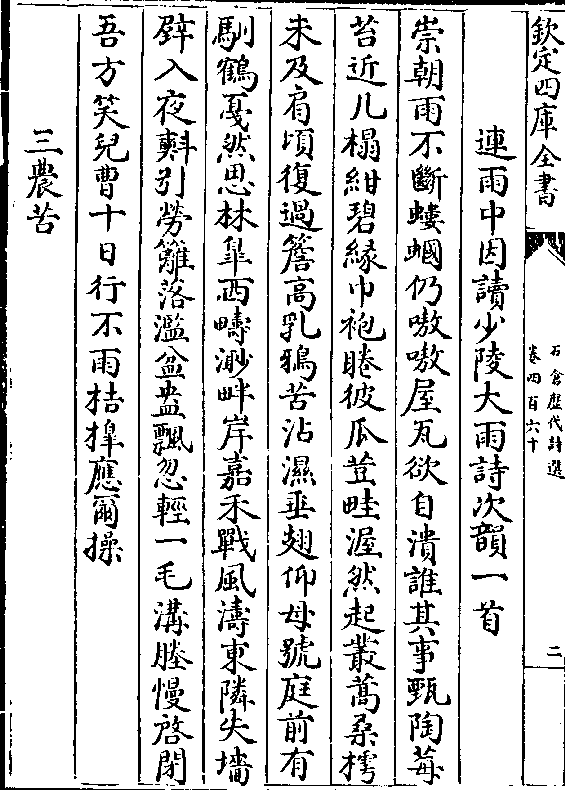 欽定四庫全書
石倉歷代詩選
卷四百六十
二
連雨中因讀少陵大雨詩次韻一首
崇朝雨不斷螻蟈仍嗷嗷屋瓦欲自潰誰其事甄陶莓
苔近几榻紺碧緣巾袍睠彼瓜苴畦渥然起叢蒿桑樗
未及肩頃復過簷高乳鴉苦沾濕垂翅仰母號庭前有
馴鶴戛然思林臯西疇渺畔岸嘉禾戰風濤東隣失墻
壁入夜㪺引勞籬落濫盆盎飄忽輕一毛溝塍慢啓閉
吾方笑兒曹十日行不雨桔橰應爾操
三農苦